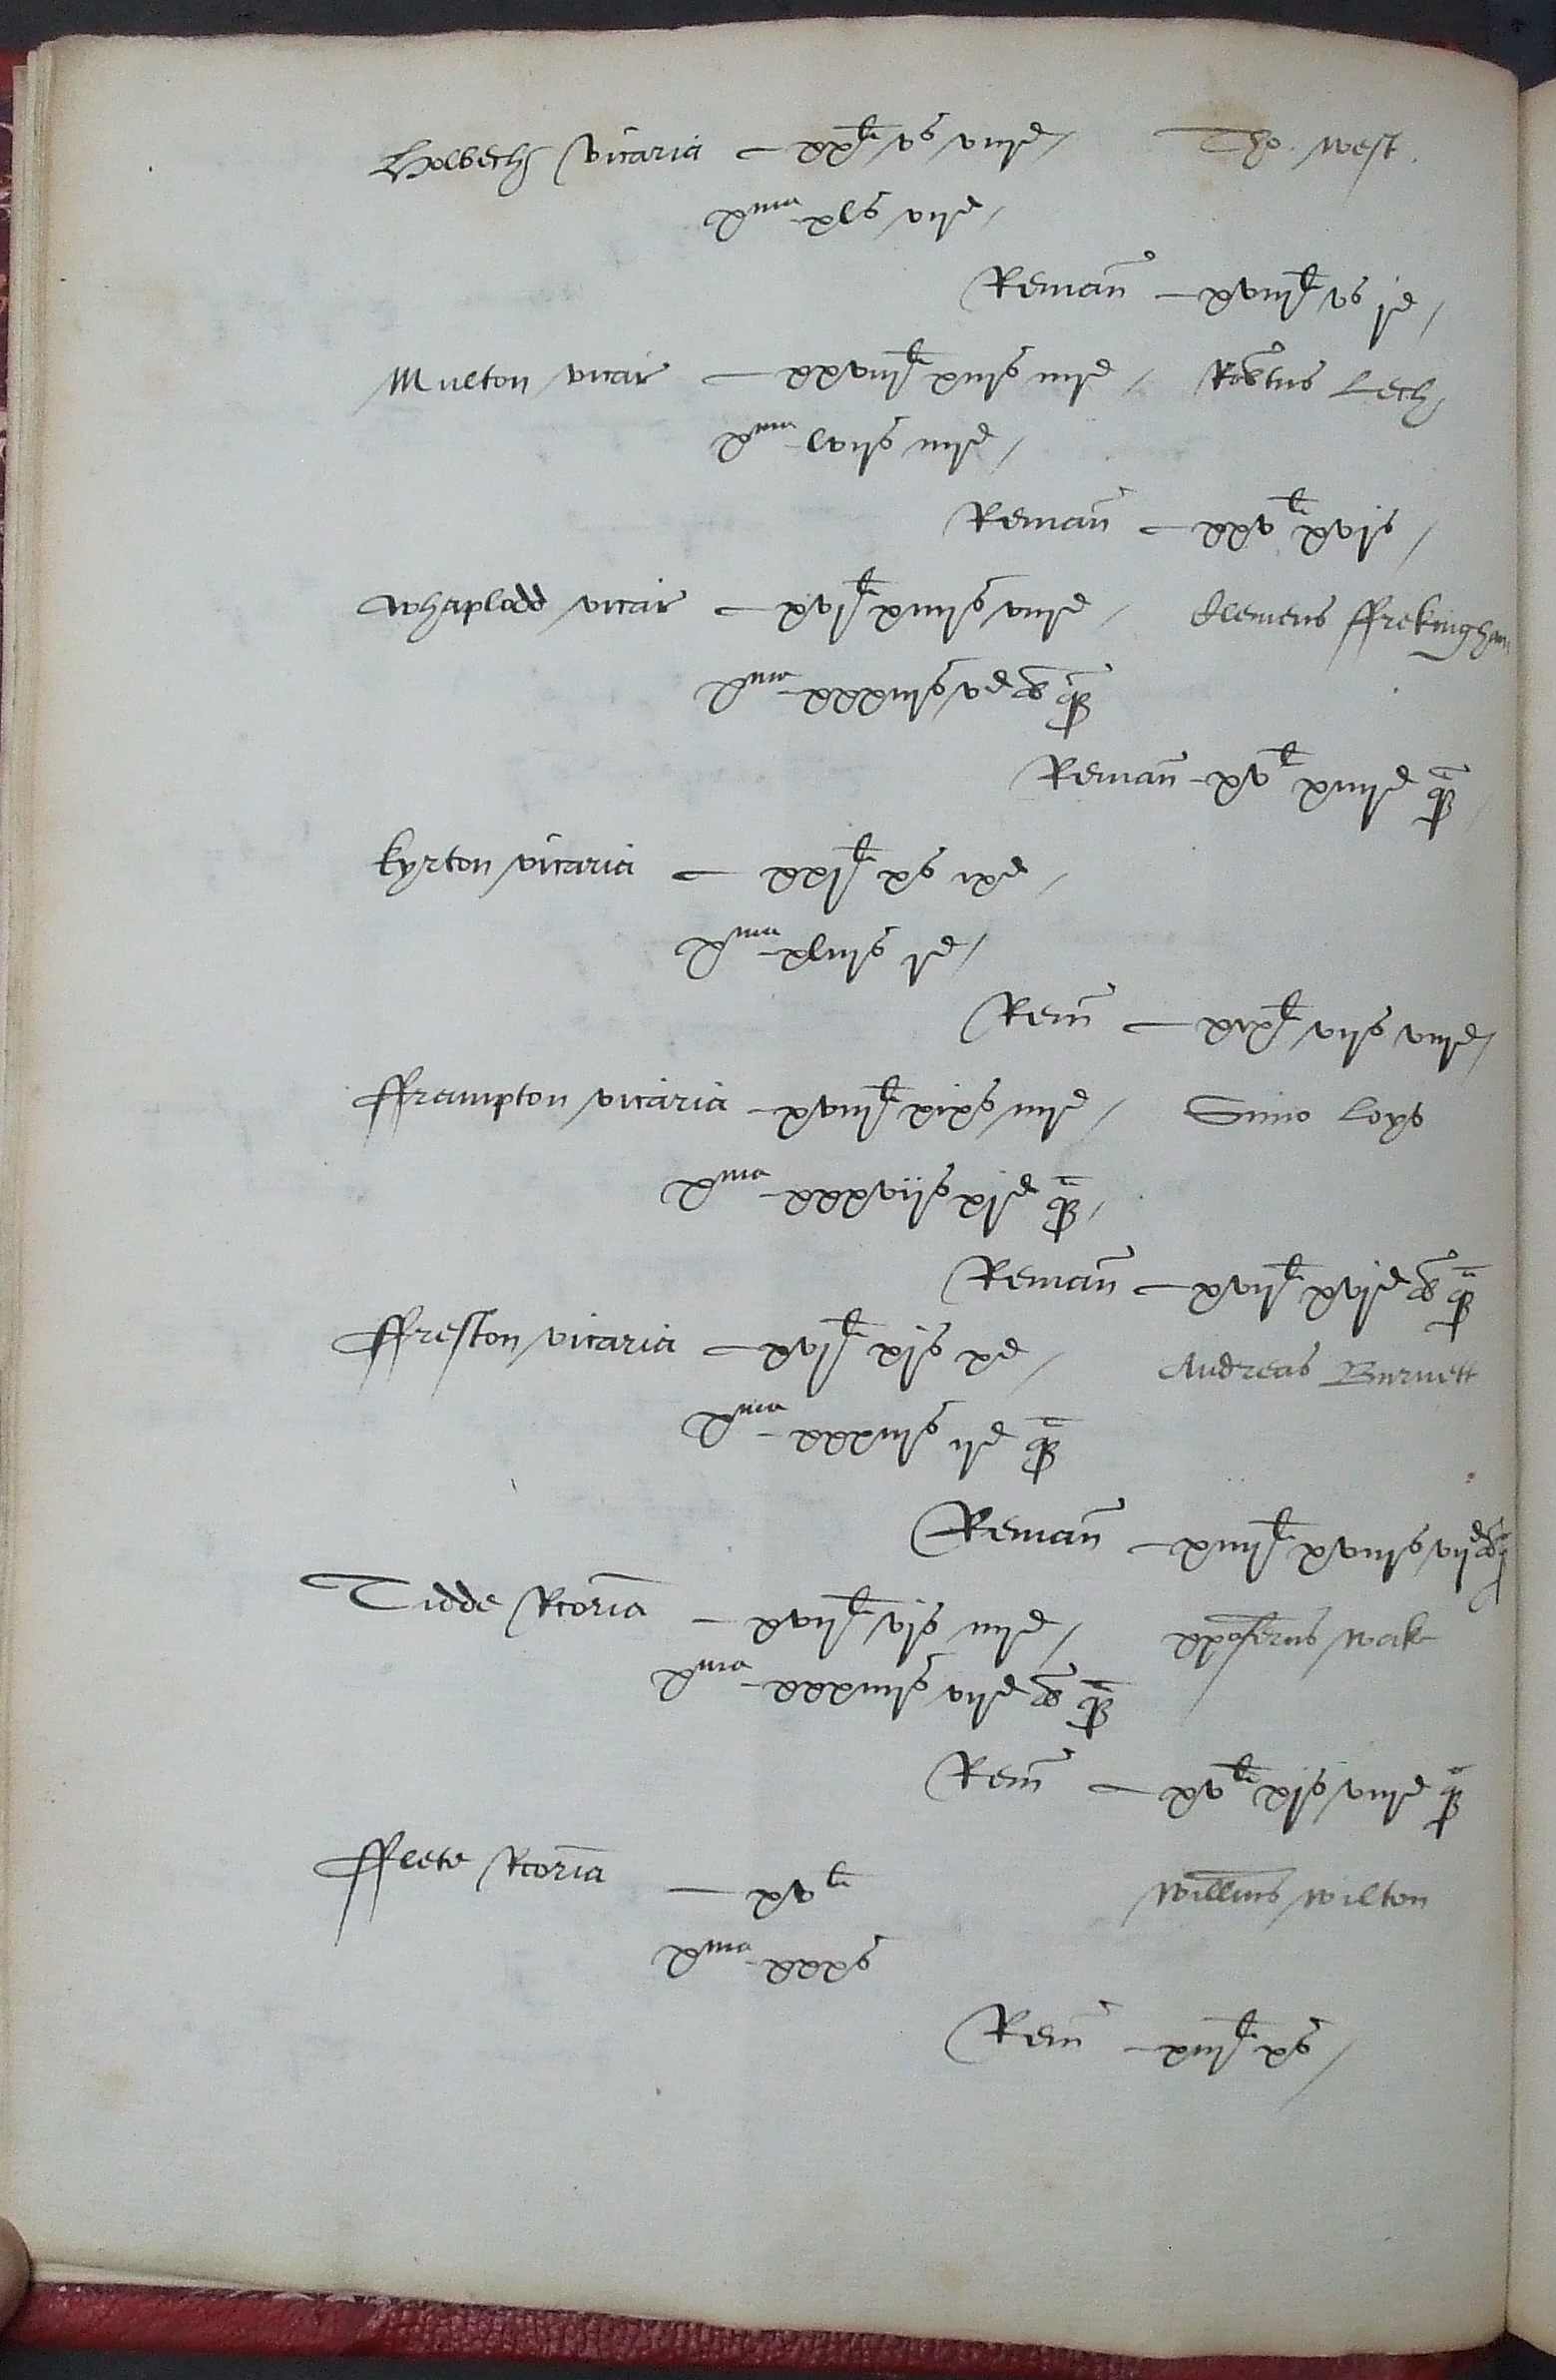 Holbech vicaria — xxli vs viijd / Tho. West.
xma xls vijd /
Remañ — xviijli vs jd /
Multon vicar — xxviijli xiijs iiijd / Robtus Lech
xma lvijs iiijd /
Remañ — xxvli xvjs /
Whaplodd vicar — xvjli xiiijs viijd / Clemens ffrekingham
xma xxxiijs vd ob q
Remañ — xvli xiiijd q /
Kyrton vicaria — xxjli xs ixd /
xma xliijs jd /
Rem̃ — xixli vijs viijd /
fframpton vicaria — xviijli xixs iiijd / Simo Loys
xma xxxvijs xjd q /
Remañ — xvijli xvjd ob q
ffreston vicaria — xvjli xjs xd / Andreas Burnett
xma xxxiijs ijd q
Remañ — xiiijli xviijs vijd ob q
Tidde Rcoria — xvijli vjs iiijd / xpoferus Wak
xma xxxiiijs vijd ob q
Rem̃ — xvli xjs viijd q
fflete Rcoria — xvli Willms Wilton
xma xxxs
Rem̃ — xiijli xs /